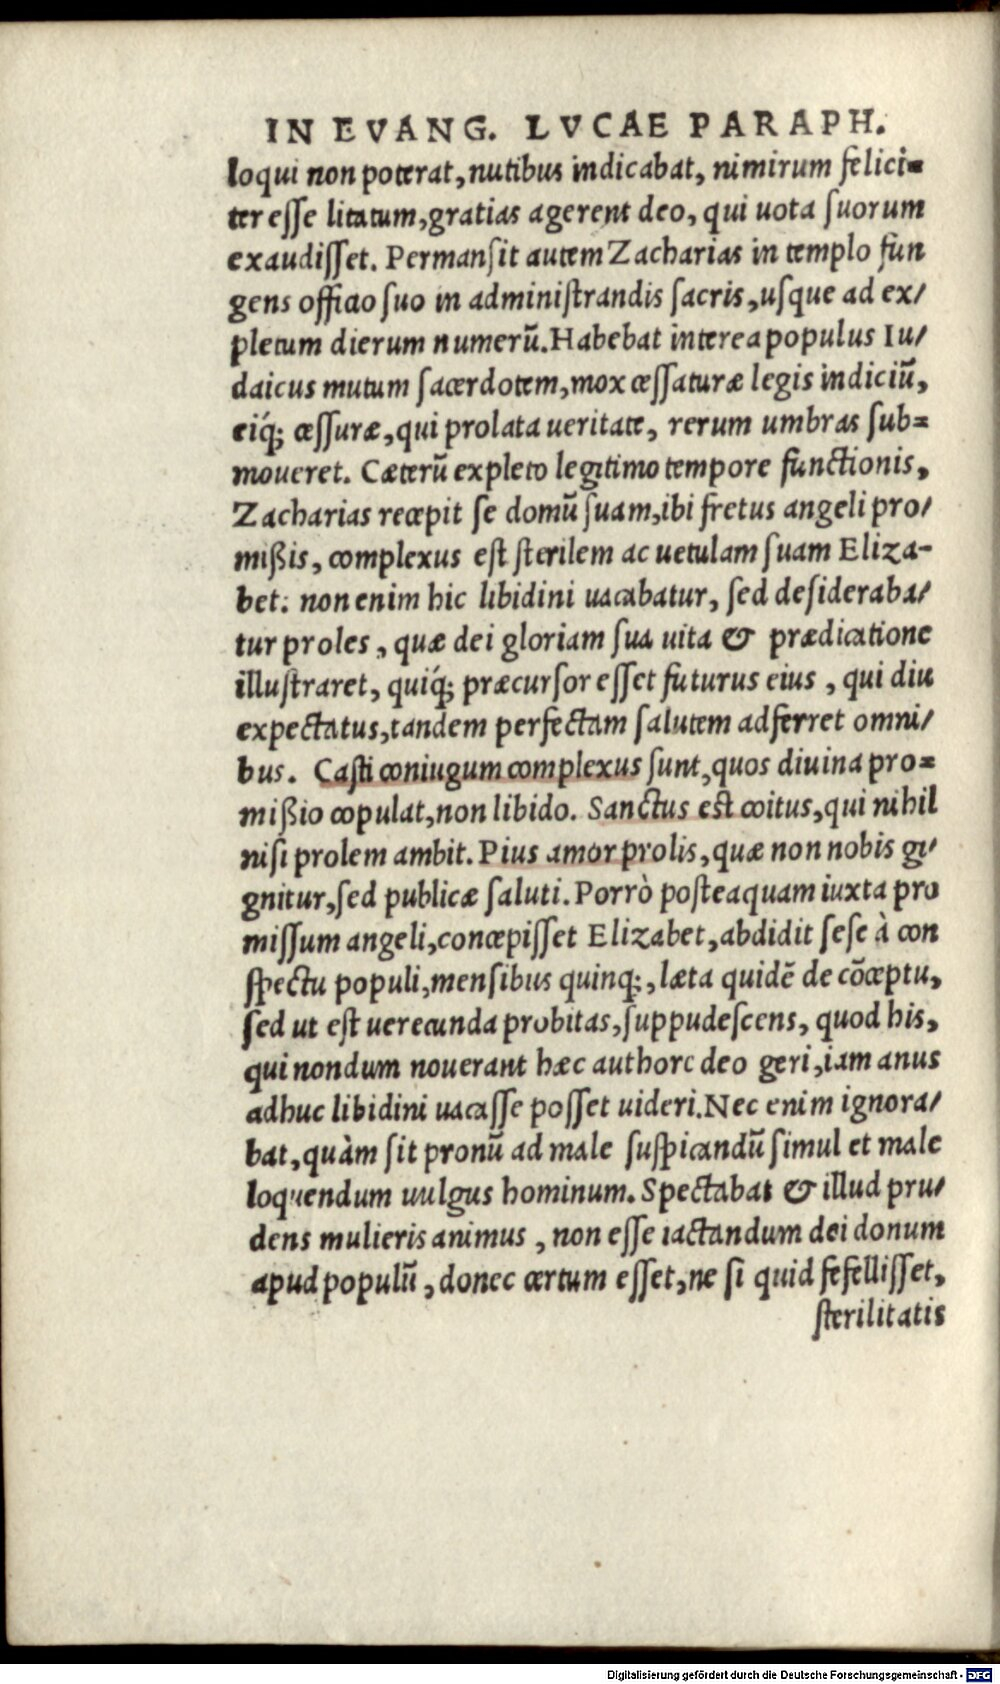 IN EVANG. LVCAE PARAPH.
loqui non poterat, nutibus indicabat, nimirum felici=
ter esse litatum, gratias agerent deo, qui uota suorum
exaudisset. Permansit autem Zacharias in templo fun
gens officio suo in administrandis sacris, usque ad ex/
pletum dierum numerū. Habebat interea populus Iu/
daicus mutum sacerdotem, mox cessaturæ legis indiciū,
eiq́; cessuræ, qui prolata ueritate, rerum umbras sub=
moueret. Cæterū expleto legitimo tempore functionis,
Zacharias recepit se domū suam, ibi fretus angeli pro/
mißis, complexus est sterilem ac uetulam suam Eliza-
bet: non enim hic libidini uacabatur, sed desideraba/
tur proles, quæ dei gloriam sua uita & prædicatione
illustraret, quiq́; præcursor esset futurus eius, qui diu
expectatus, tandem perfectam salutem adferret omni/
bus. Casti coniugum complexus sunt, quos diuina pro=
mißio copulat, non libido. Sanctus est coitus, qui nihil
nisi prolem ambit. Pius amor prolis, quæ non nobis gi/
gnitur, sed publicæ saluti. Porrò posteaquam iuxta pro
missum angeli, concepisset Elizabet, abdidit sese à con
spectu populi, mensibus quinq;, læta quidē de cōceptu,
sed ut est uerecunda probitas, suppudescens, quod his,
qui nondum nouerant hæc authore deo geri, iam anus
adhuc libidini uacasse posset uideri. Nec enim ignora/
bat, quàm sit pronū ad male suspicandū simul et male
loquendum uulgus hominum. Spectabat & illud pru/
dens mulieris animus, non esse iactandum dei donum
apud populū, donec certum esset, ne si quid fefellisset,
sterilitatis
Digitalisierung gefördert durch die Deutsche Forschungsgemeinschaft - DFG